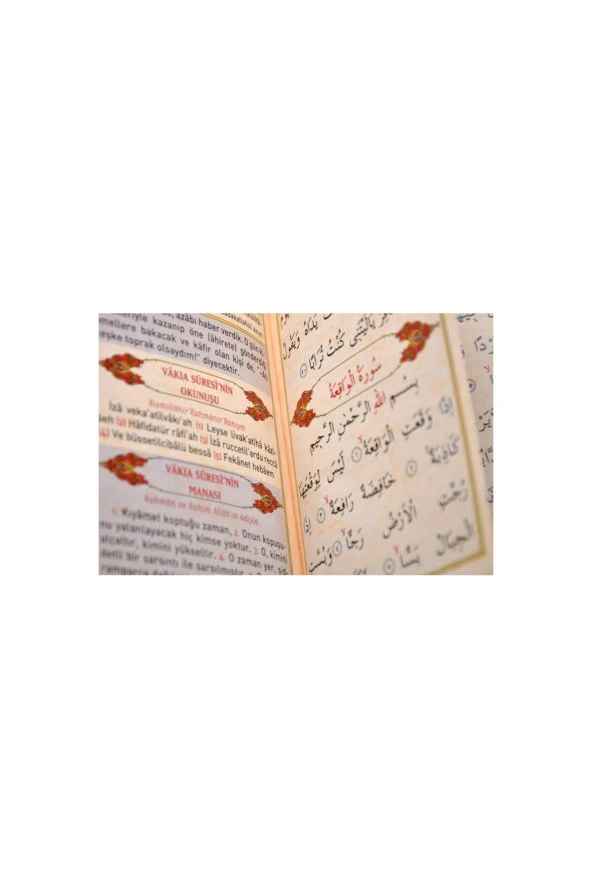 azâbı haber verdik. O gün ki
kazanıp öne (âhirete) gönderdiği
bakacak ve kâfir olan kişi de, "Ah
keşke toprak olsaydım!" diyecektir.
VÂKIA SÛRESİ'NİN
OKUNUŞU
Bismillâhir'Rahmânir'Rahiym
İzâ veka'atilvâkı'ah (1) Leyse livak'atihâ kâzi-
beh (2) Hâfidatür râfi'ah (3) İzâ ruccetil'ardu reccâ
(4) Ve büssetilcibâlü bessâ (5) Fekânet hebâem
VÂKIA SÛRESİ'NİN
MANASI
Rahmân ve Rahîm Allâh'ın adıyla
1. Kıyâmet koptuğu zaman, 2. Onun kopuşu-
nu yalanlayacak hiç kimse yoktur. 3. O, kimini
alçaltır, kimini yükseltir. 4. O zaman yer, şid-
detli bir sarsıntı ile sarsılmıştır.
يَدَاهُ وَيَقُولُ
يَالَيْتَنِي كُنْتُ تُرَابًا ﴿٤٠﴾
سُورَةُ الْوَاقِعَةِ
بِسْمِ اللهِ الرَّحْمٰنِ الرَّحِيمِ
اِذَا وَقَعَتِ الْوَاقِعَةُ ﴿١﴾ لَيْسَ لِوَقْعَتِهَا
كَاذِبَةٌ ﴿٢﴾ خَافِضَةٌ رَافِعَةٌ ﴿٣﴾ اِذَا
رُجَّتِ الْاَرْضُ رَجًّا ﴿٤﴾ وَبُسَّتِ
الْجِبَالُ بَسًّا ﴿٥﴾